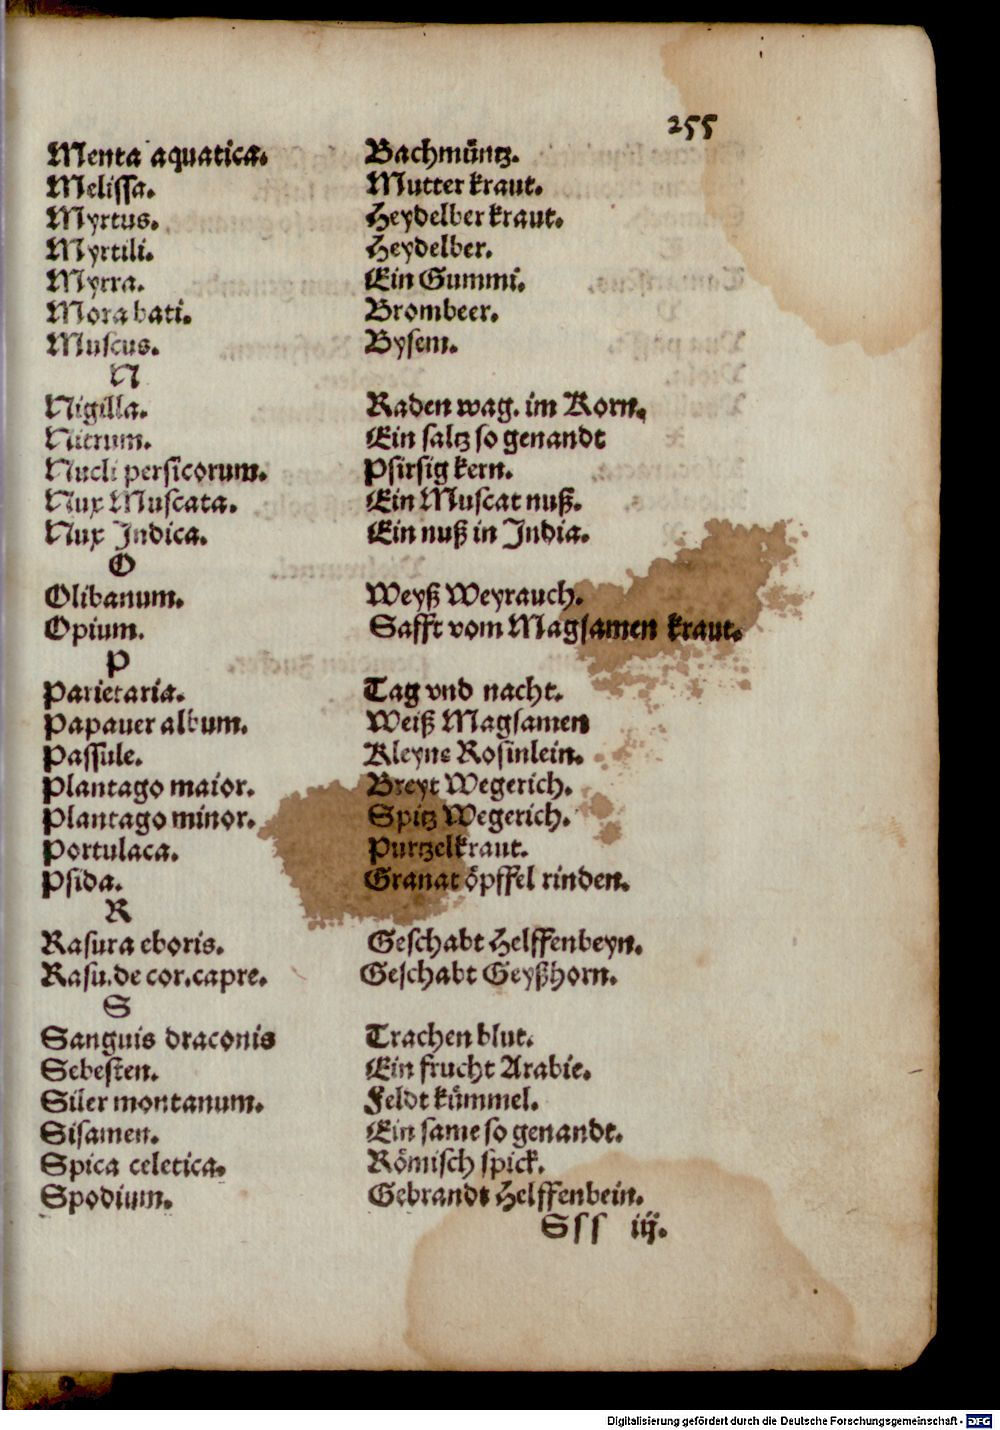 255
Menta aquatica. Bachmüntz.
Melissa. Mutter kraut.
Myrtus. Heydelber kraut.
Myrtili. Heydelber.
Myrra. Ein Gummi.
Mora bati. Brombeer.
Muscus. Bysem.
N
Nigilla. Raden wag. im Korn.
Nitrum. Ein saltz so genandt
Nucli persicorum. Pfirsig kern.
Nux Muscata. Ein Muscat nuß.
Nux Indica. Ein nuß in India.
O
Olibanum. Weyß Weyrauch.
Opium. Safft vom Magsamen kraut.
P
Parietaria. Tag vnd nacht.
Papauer album. Weiß Magsamen
Passule. Kleyne Rosinlein.
Plantago maior. Breyt Wegerich.
Plantago minor. Spitz Wegerich.
Portulaca. Purtzelkraut.
Psida. Granat öpffel rinden.
R
Rasura eboris. Geschabt Helffenbeyn.
Rasu.de cor.capre. Geschabt Geyßhorn.
S
Sanguis draconis Trachen blut.
Sebesten. Ein frucht Arabie.
Siler montanum. Feldt kümmel.
Sisamen. Ein same so genandt.
Spica celetica. Römisch spick.
Spodium. Gebrandt Helffenbein.
Sss iij.
Digitalisierung gefördert durch die Deutsche Forschungsgemeinschaft - DFG